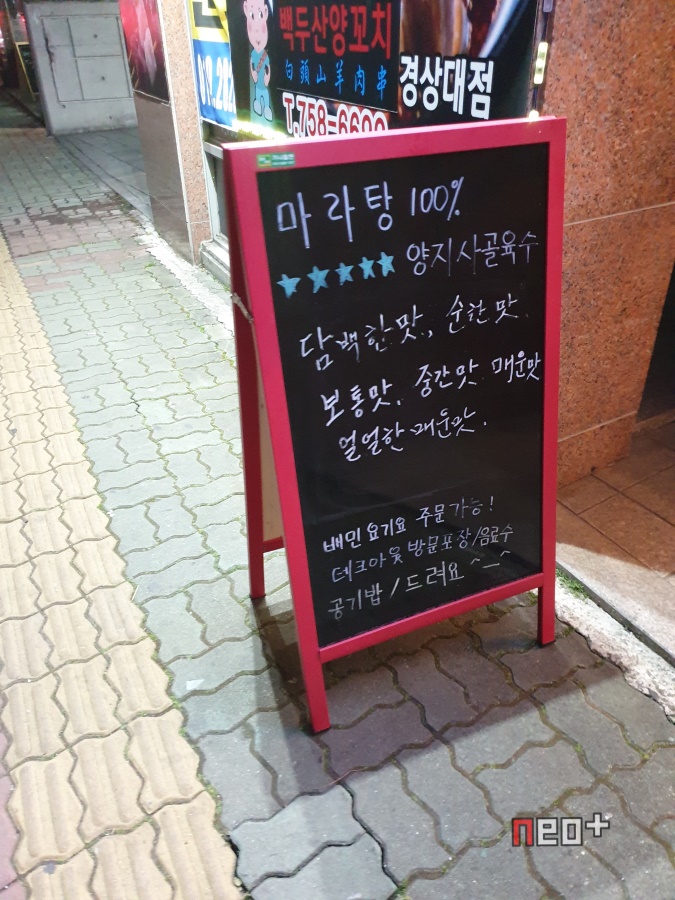 백두산양꼬치
白頭山羊肉串
경상대점
T.758-6690
마라탕 100%
★★★★★ 양지사골육수
담백한맛, 순한맛
보통맛, 중간맛 매운맛
얼얼한 매운맛.
배민 요기요 주문가능!
데크아웃 방문포장/음료수
공기밥/드려요 ^_^
neo+